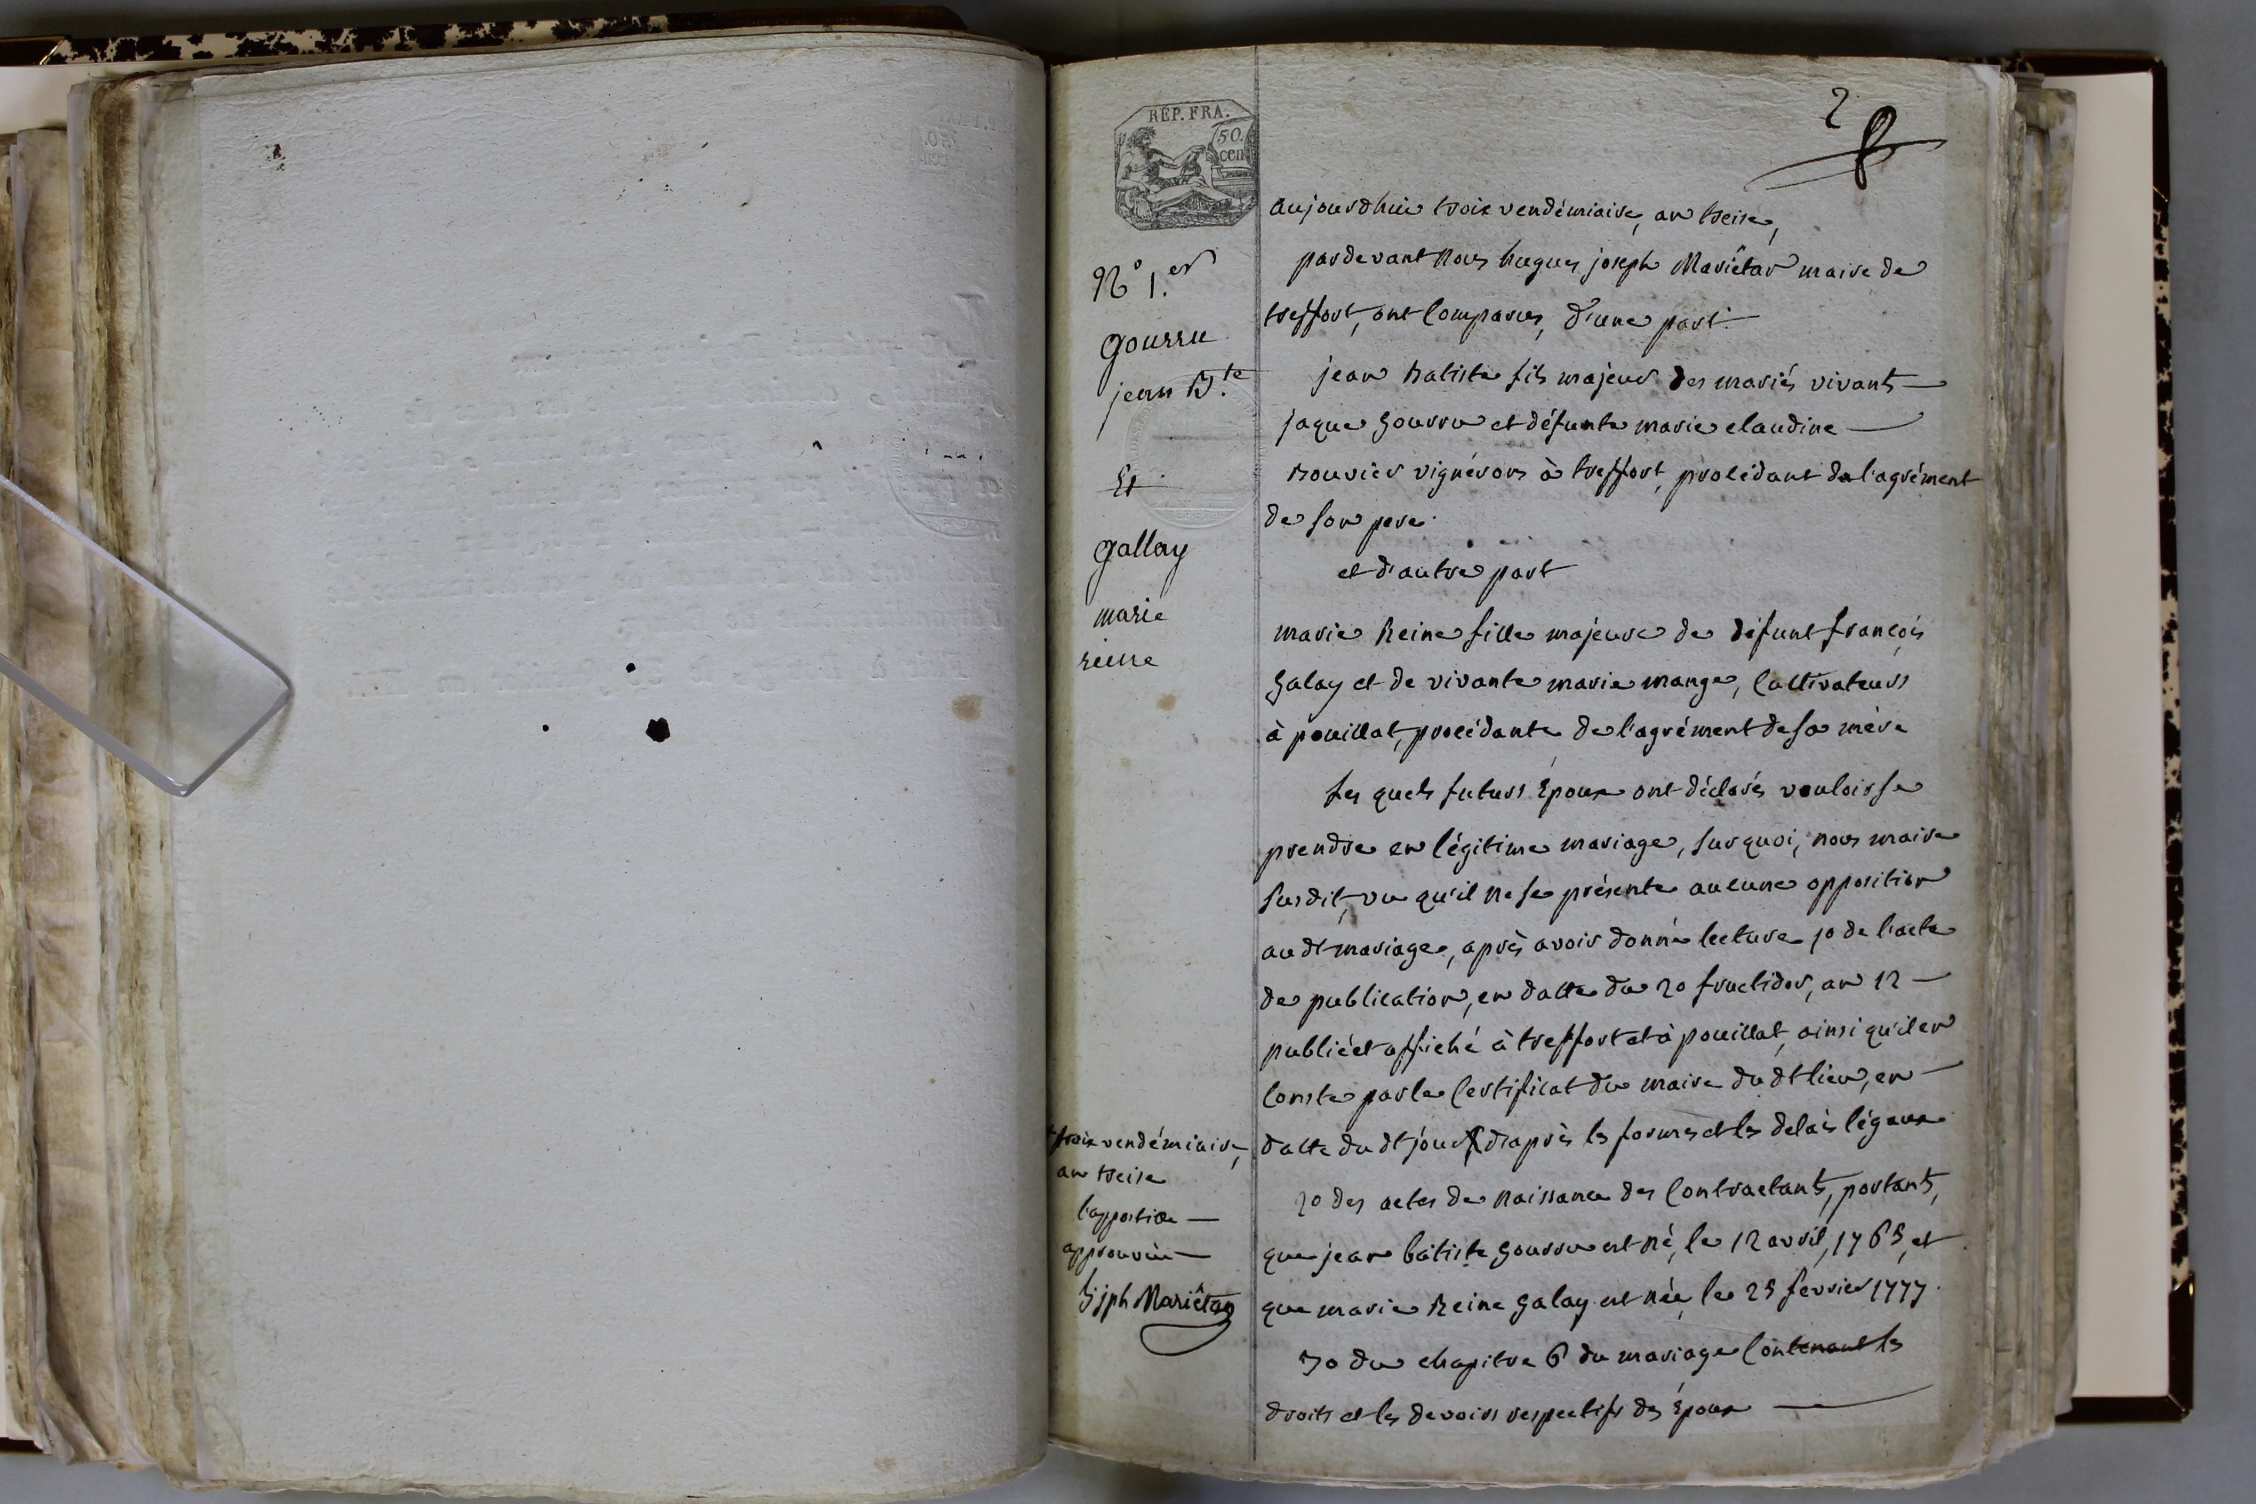 2
REP. FRA.
50.
cen.
N.° 1.er
gourru
jean B.te
Et
gallay
marie
reine
aujourdhui trois vendémiaire, an treise,
pardevant Nous hugues joseph Mariêtan maire de
treffort, ont Comparus, d'une part
jean batiste fils majeur des mariés vivants
jaque gourru et défunte marie claudine
Bouvier vignérons à treffort, procédant de l'agrément
de son pere
et d'autre part
marie Reine fille majeure de défunt françois
galay et de vivante marie mange, Cultivateurs
à pouillat, procédante de l'agrément de sa mère
Les quels futurs Époux ont déclarés vouloir se
prendre en légitime mariage, sur quoi, nous maire
susdit, vu qu'il ne se présente aucune opposition
au dt mariage, après avoir donné lecture 1o de l'acte
de publication, en datte du 20 fructidor, an 12
publié et affiché à treffort et à pouillat, ainsi qu'il en
Conste par le Certificat du maire du dt lieu, en
datte du dt jour d'après les formes et les delais légaux
2o des actes de Naissance des Contractants, portants,
que jean batiste gourru est né, le 12 avril, 1765, et
que marie Reine galay est née, le 25 fevrier 1777.
3o du chapitre 6 du mariage Contenant les
droits et les devoirs respectifs des Époux
trois vendémiaire,
an treise
l'apostice
approuvée
h jph Mariêtan